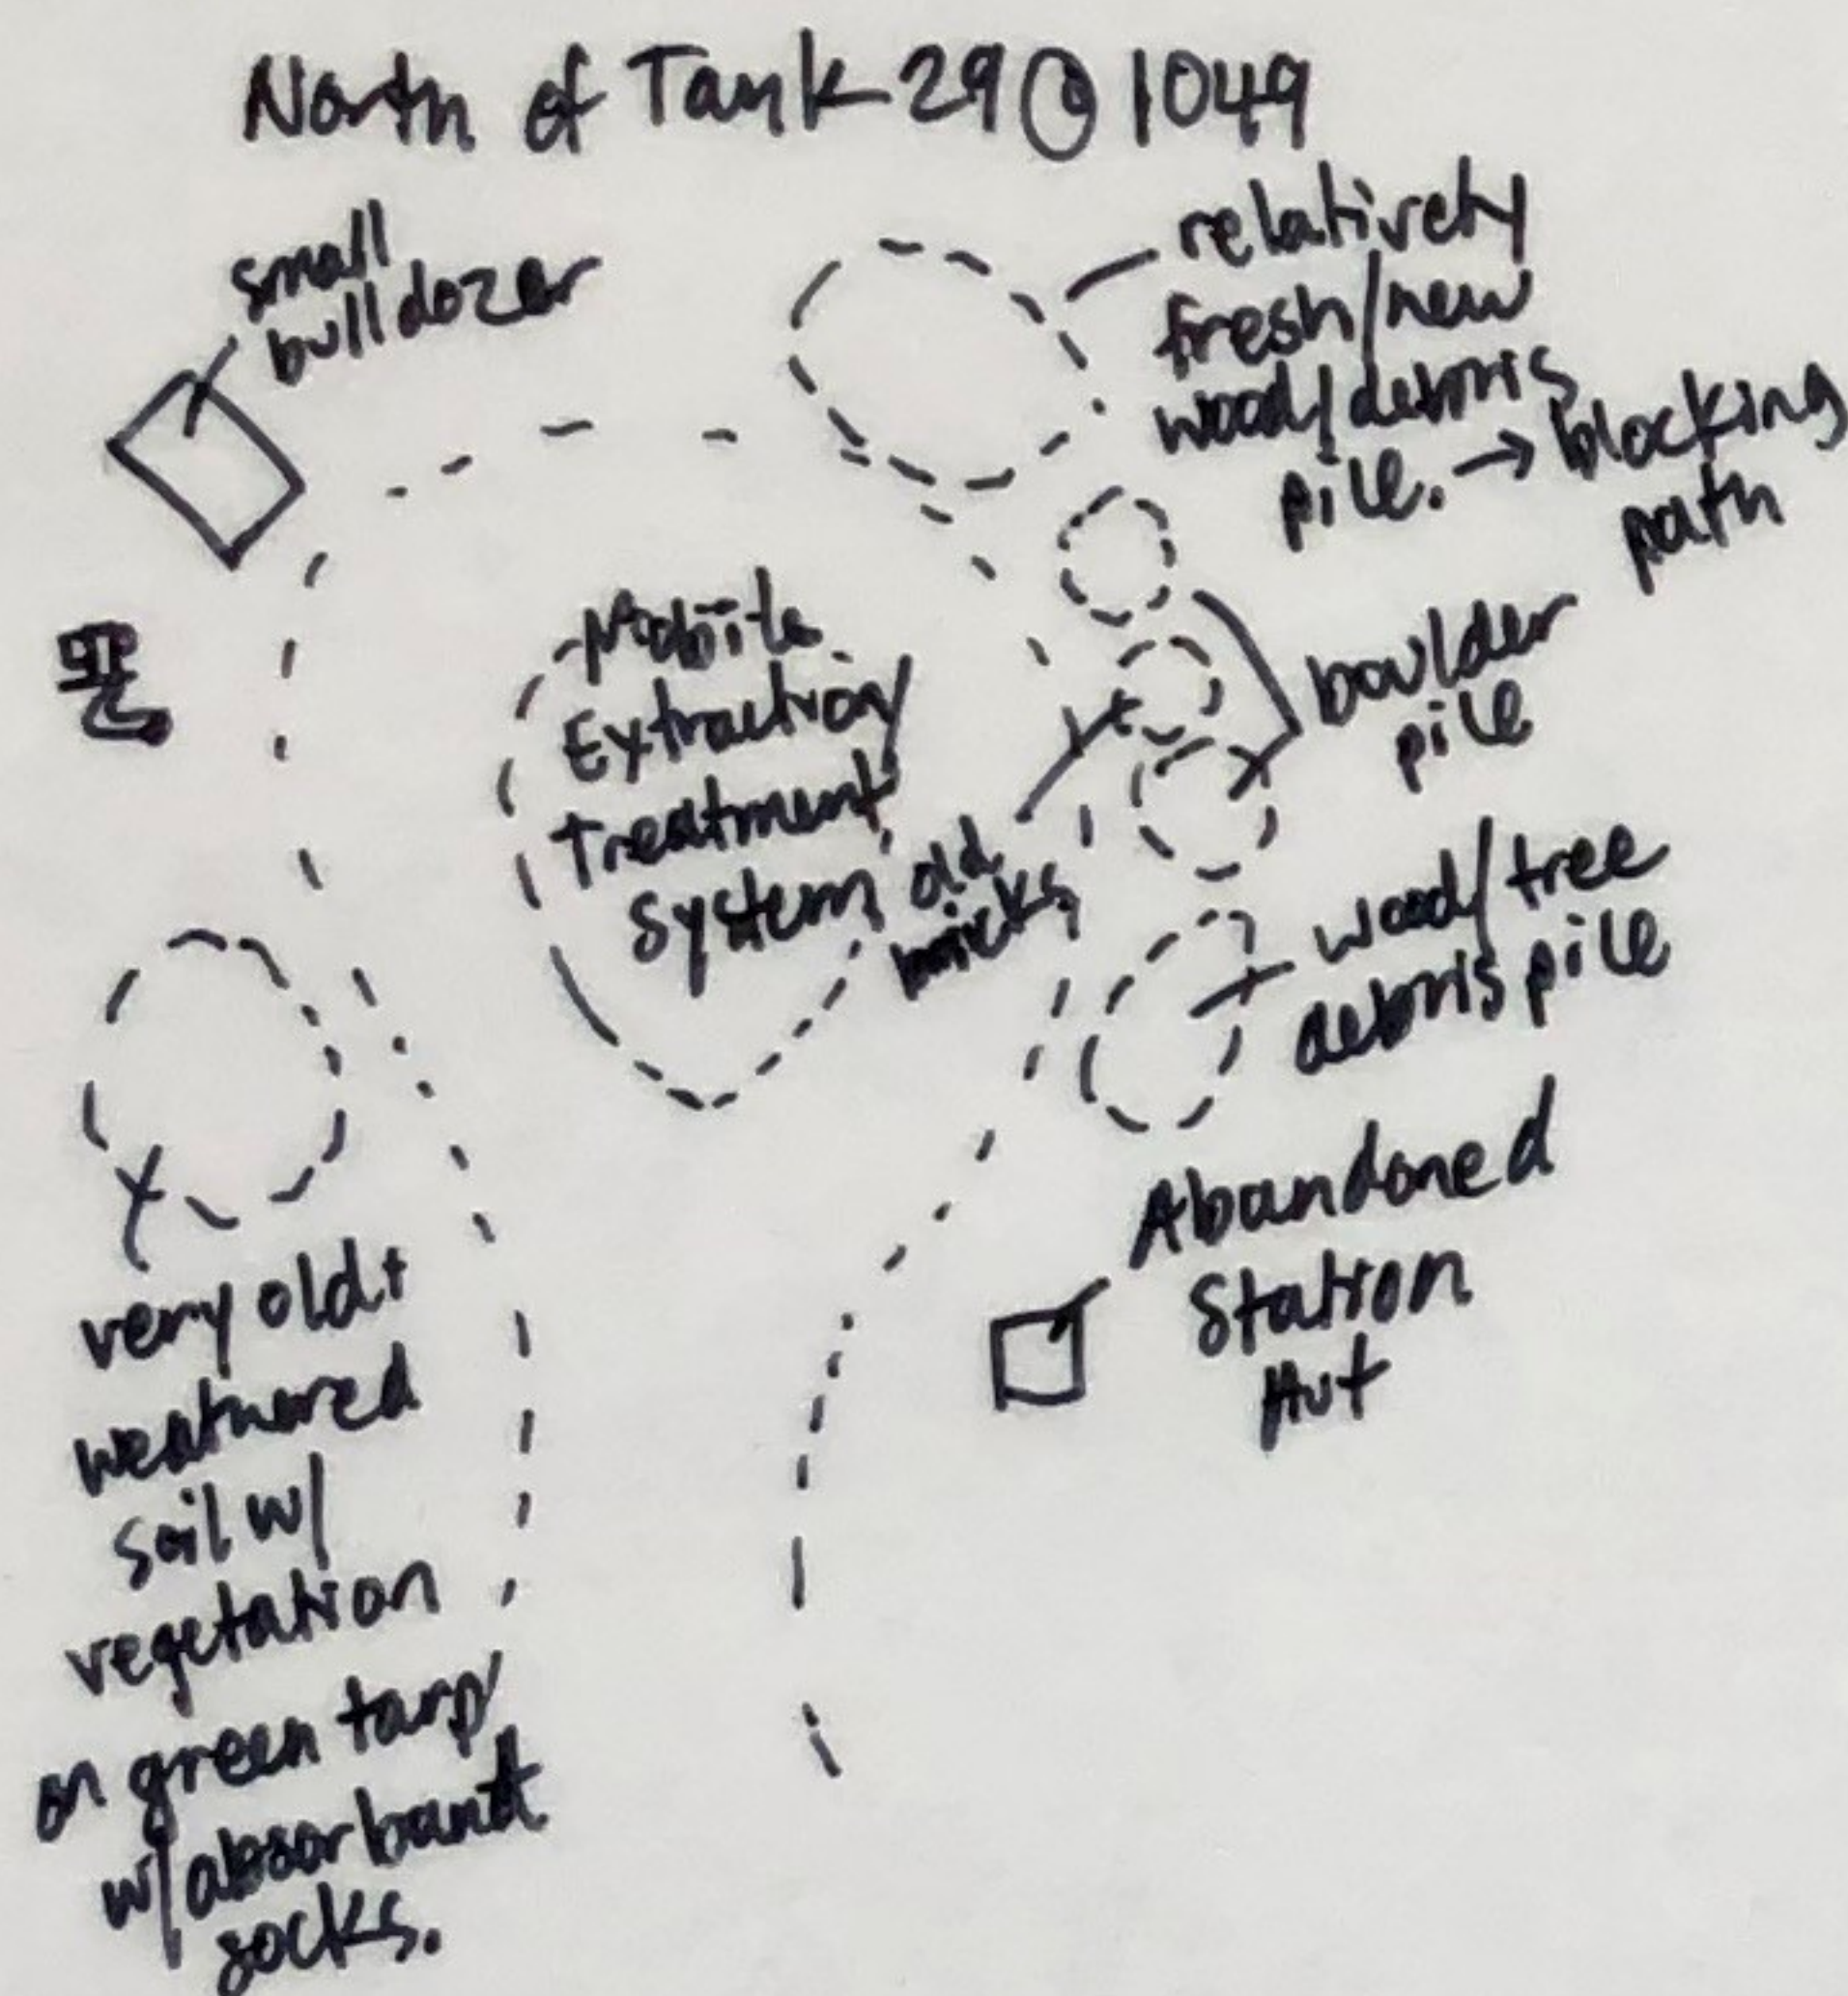 North of Tank 29 @ 1049
small
bulldozer
relatively
fresh/new
wood/debris
pile. → blocking
path
Mobile
Extraction/
Treatment
System
old
bricks
boulder
pile
wood/tree
debris pile
Abandoned
Station
Hut
very old +
weathered
soil w/
vegetation
on green tarp
w/absorbant
socks.